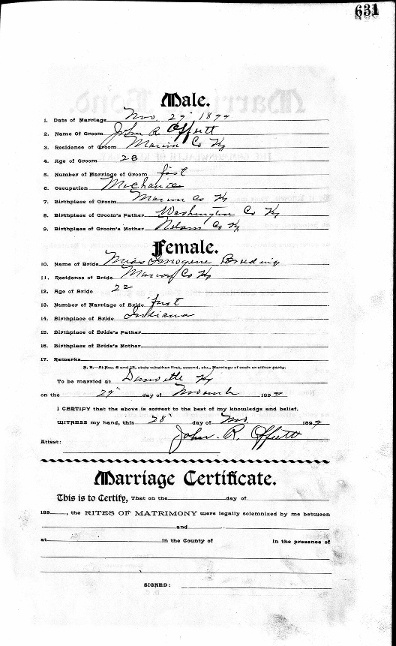 631
Male.
1. Date of Marriage Nov. 29" 1894
2. Name Of Groom John R Offutt
3. Residence of Groom Marion Co Ky
4. Age of Groom 28
5. Number of Marriage of Groom first
6. Occupation Mechanic
7. Birthplace of Groom Marion Co Ky
8. Birthplace of Groom's Father Washington Co Ky
9. Birthplace of Groom's Mother Nelson Co Ky
Female.
10. Name of Bride Miss Imogene
11. Residence of Bride Marion Co Ky
12. Age of Bride 22
13. Number of Marriage of Bride first
14. Birthplace of Bride Indiana
15. Birthplace of Bride's Father
16. Birthplace of Bride's Mother
17. Remarks
To be married at Ky
on the 29" day of 189
I CERTIFY that the above is correct to the best of my knowledge and belief.
WITNESS my hand, this 28" day of Nov 189
John. R. Offutt
Attest:
Marriage Certificate.
This is to Certify, That on the day of
189 , the RITES OF MATRIMONY were legally solemnized by me between
and
at in the County of in the presence of
SIGNED: